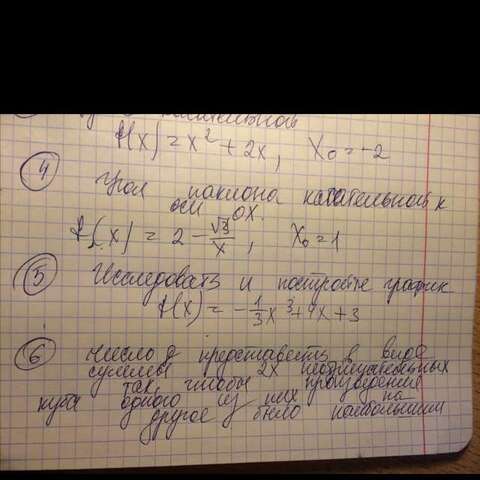 f(x) = x² + 2x, x₀ = -2
4 Угол наклона касательной к
оси OX.
f(x) = 2 - √3/x, x₀ = 1
5 Исследовать и постройте график
f(x) = -1/3 x³ + 4x + 3
6 Число представить в виде
суммы 2х неотрицательных
так, чтобы произведение
куба одного из них на
другое было наибольшим